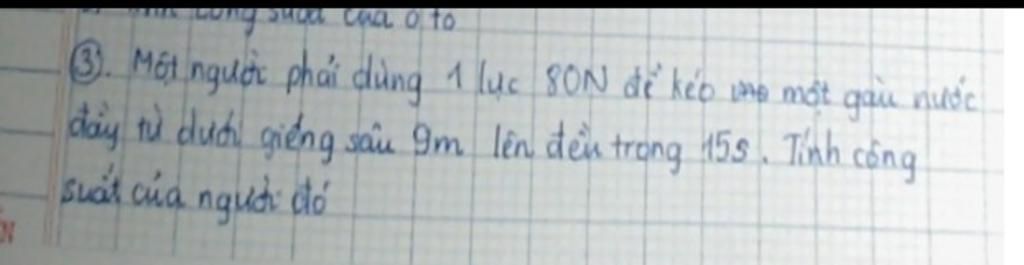 công suất của ô tô
③. Một người phải dùng 1 lực 80N để kéo một gàu nước
đầy từ dưới giếng sâu 9m lên đều trong 15s. Tính công
suất của người đó